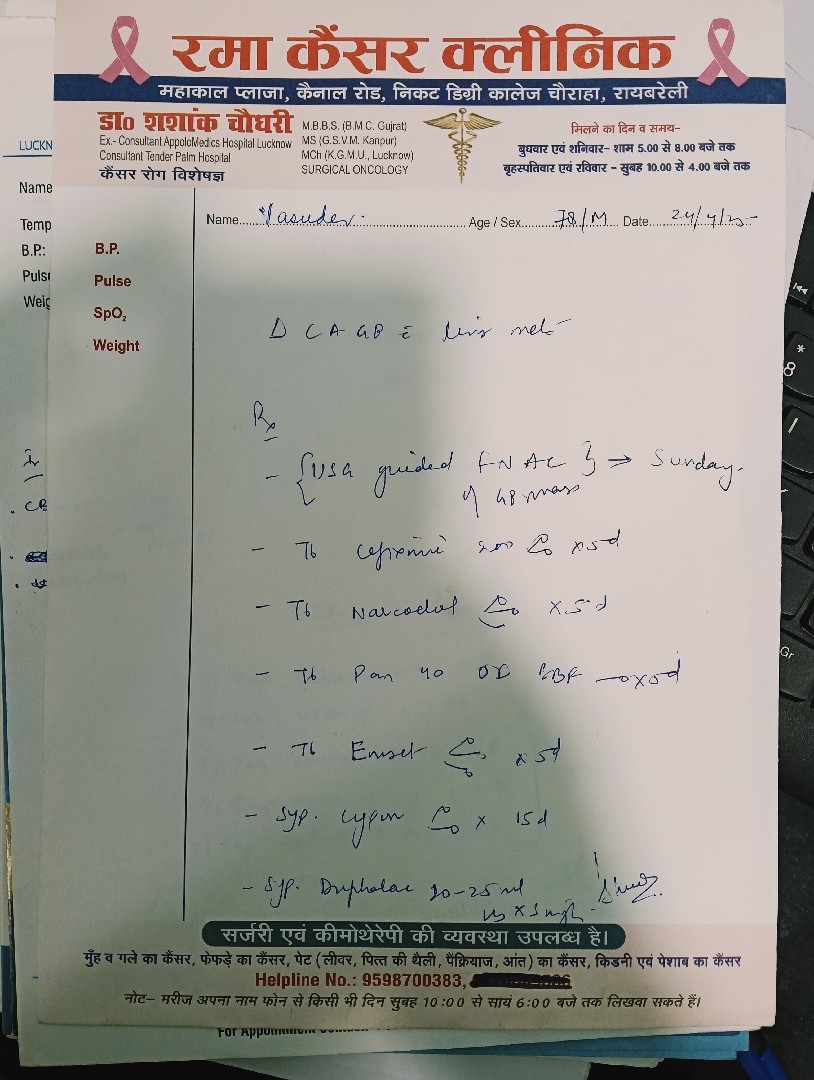 रमा कैंसर क्लीनिक
महाकाल प्लाजा, कैनाल रोड, निकट डिग्री कालेज चौराहा, रायबरेली
डा० शशांक चौधरी
Ex.- Consultant AppoloMedics Hospital Lucknow
Consultant Tender Palm Hospital
कैंसर रोग विशेषज्ञ
M.B.B.S. (B.M.C. Gujrat)
MS (G.S.V.M. Kanpur)
MCh (K.G.M.U., Lucknow)
SURGICAL ONCOLOGY
मिलने का दिन व समय–
बुधवार एवं शनिवार- शाम 5.00 से 8.00 बजे तक
बृहस्पतिवार एवं रविवार – सुबह 10.00 से 4.00 बजे तक
LUCKN
Name
Temp
B.P.:
Puls
Weig
Name Vasudev Age / Sex 78/M Date 24/4/25
B.P.
Pulse
SpO₂
Weight
CA GB liv met
Rx
- {USG guided FNAC} → Sunday.
of GB mass
- Tb Cefixime 200 x 5d
- Tb Narcodol x 5d
- Tb Pan 40 OD BBF x 5d
- Tb Emset x 5d
- Syp. Cypon x 15d
- Syp. Duphalac 20-25 ml
सर्जरी एवं कीमोथेरेपी की व्यवस्था उपलब्ध है।
मुँह व गले का कैंसर, फेफड़े का कैंसर, पेट (लीवर, पित्त की थैली, पैंक्रियाज, आंत) का कैंसर, किडनी एवं पेशाब का कैंसर
Helpline No.: 9598700383,
नोट– मरीज अपना नाम फोन से किसी भी दिन सुबह 10:00 से सायं 6:00 बजे तक लिखवा सकते हैं।
For Appointment